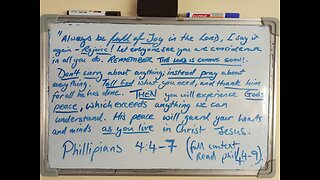 "Always be full of Joy in the Lord, I say it
again - Rejoice! Let everyone see you are considerate
in all you do. REMEMBER THE LORD IS COMING SOON!.
Don't worry about anything; instead pray about
anything. Tell God what you need, and thank him
for all he has done. THEN you will experience Gods
peace, which exceeds anything we can
understand. His peace will guard your hearts
and minds as you live in Christ Jesus.
Phillipians 4:4-7 (full context
Read Phil 4:4-9)